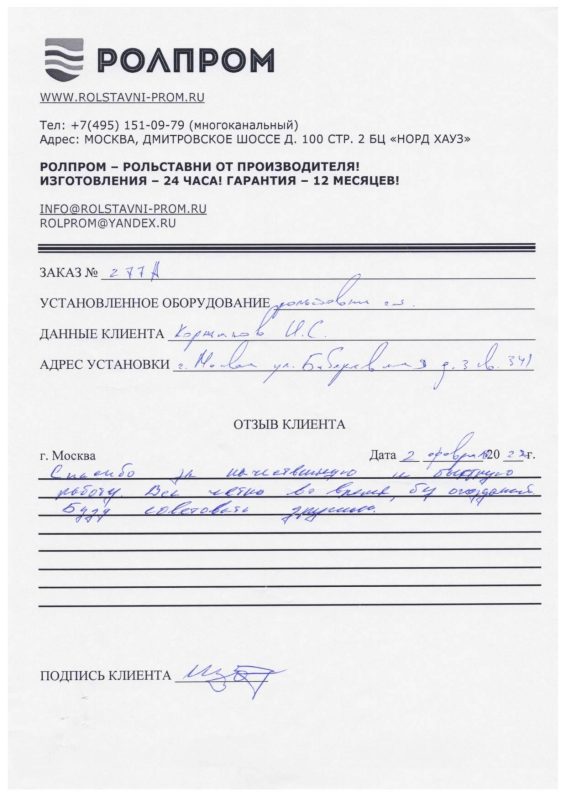 РОЛПРОМ
WWW.ROLSTAVNI-PROM.RU
Тел: +7(495) 151-09-79 (многоканальный)
Адрес: МОСКВА, ДМИТРОВСКОЕ ШОССЕ Д. 100 СТР. 2 БЦ «НОРД ХАУЗ»
РОЛПРОМ – РОЛЬСТАВНИ ОТ ПРОИЗВОДИТЕЛЯ!
ИЗГОТОВЛЕНИЯ – 24 ЧАСА! ГАРАНТИЯ – 12 МЕСЯЦЕВ!
INFO@ROLSTAVNI-PROM.RU
ROLPROM@YANDEX.RU
ЗАКАЗ № 277А
УСТАНОВЛЕННОЕ ОБОРУДОВАНИЕ рольставни
ДАННЫЕ КЛИЕНТА И.С.
АДРЕС УСТАНОВКИ г. Москва ул. д. 3 кв. 341
ОТЗЫВ КЛИЕНТА
г. Москва Дата 2 февраля 20 22 г.
Спасибо за качественную и быструю
работу. Все четко во время, без ожиданий
Буду советовать друзьям.
ПОДПИСЬ КЛИЕНТА